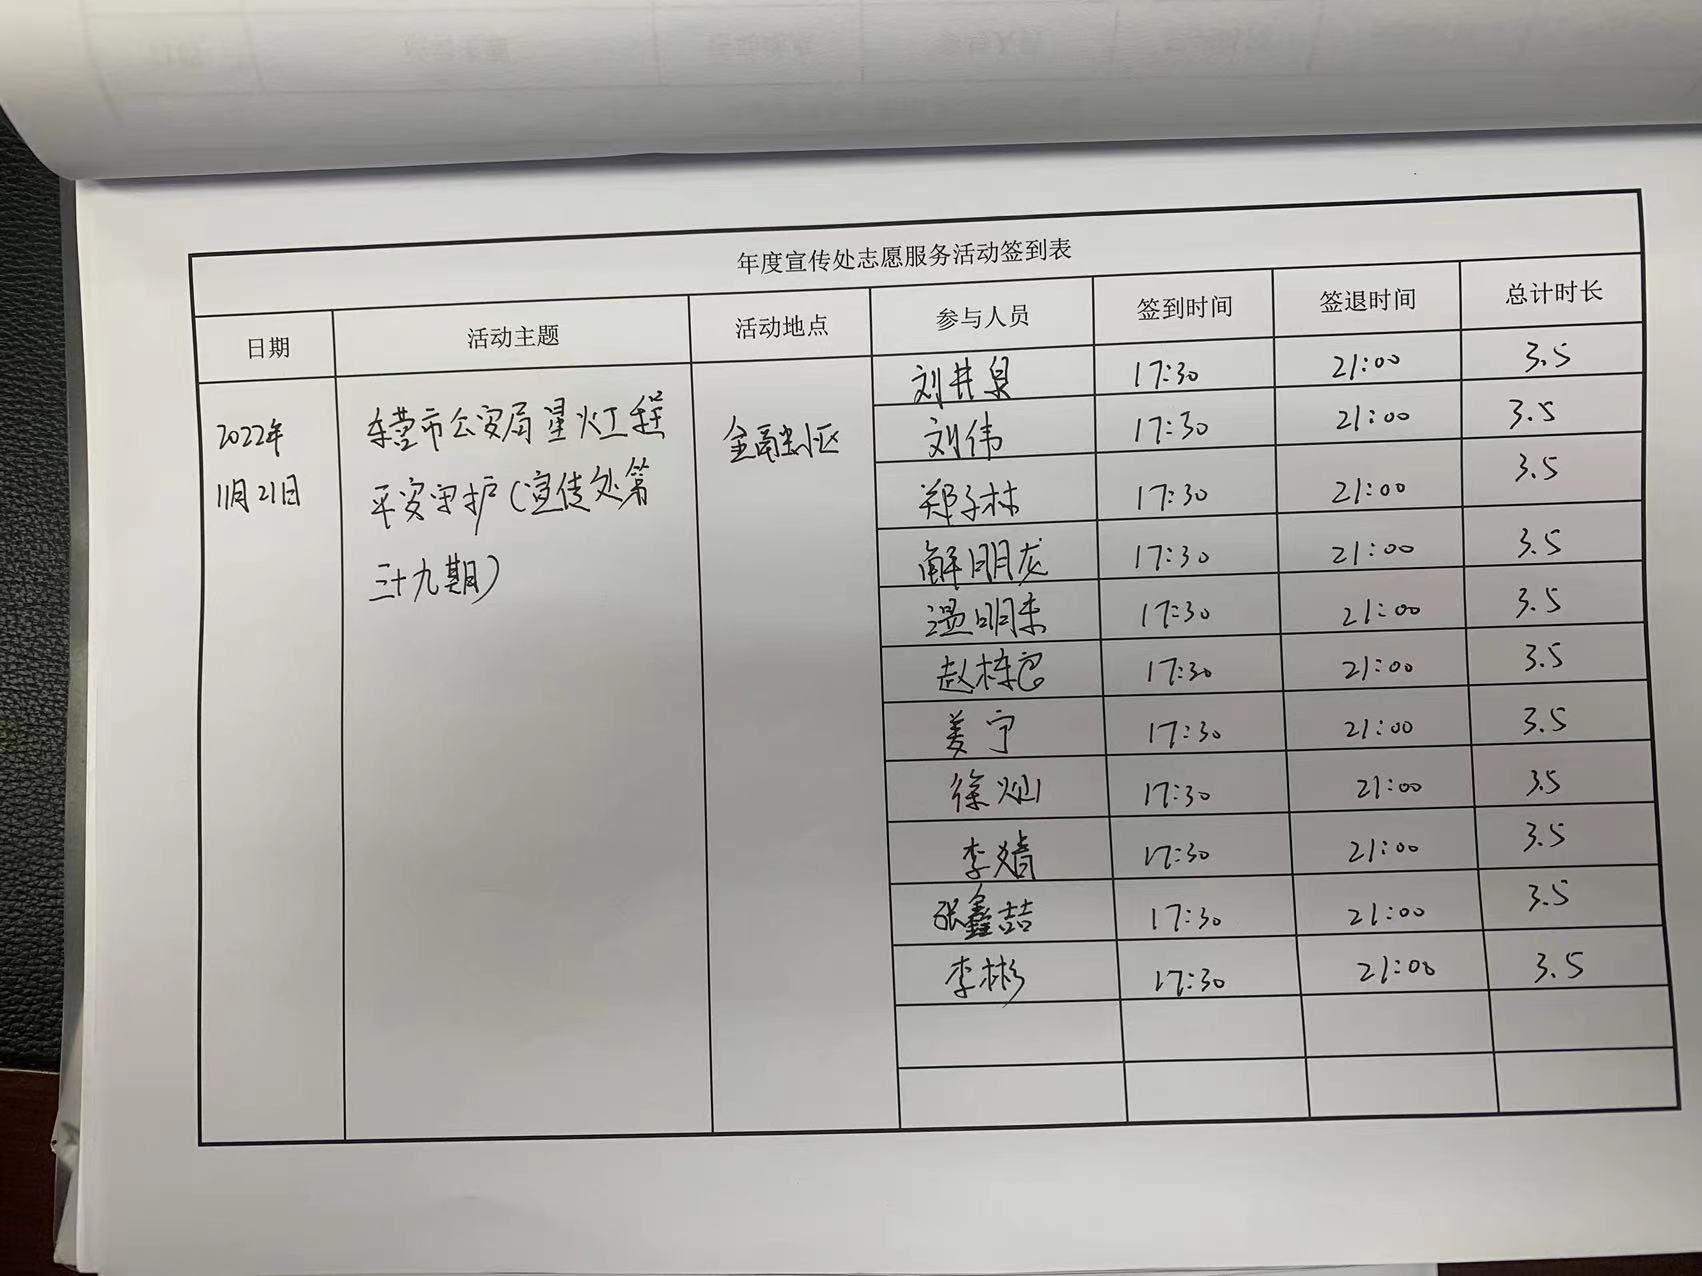 年度宣传处志愿服务活动签到表
日期 活动主题 活动地点 参与人员 签到时间 签退时间 总计时长
2022年
11月21日
东营市公安局星火工程
平安守护（宣传处第
三十九期）
金融小区
刘井泉 17:30 21:00 3.5
刘伟 17:30 21:00 3.5
郑子林 17:30 21:00 3.5
解明龙 17:30 21:00 3.5
温明来 17:30 21:00 3.5
赵栋 17:30 21:00 3.5
姜宁 17:30 21:00 3.5
徐灿 17:30 21:00 3.5
李婧 17:30 21:00 3.5
张鑫喆 17:30 21:00 3.5
李彬 17:30 21:00 3.5